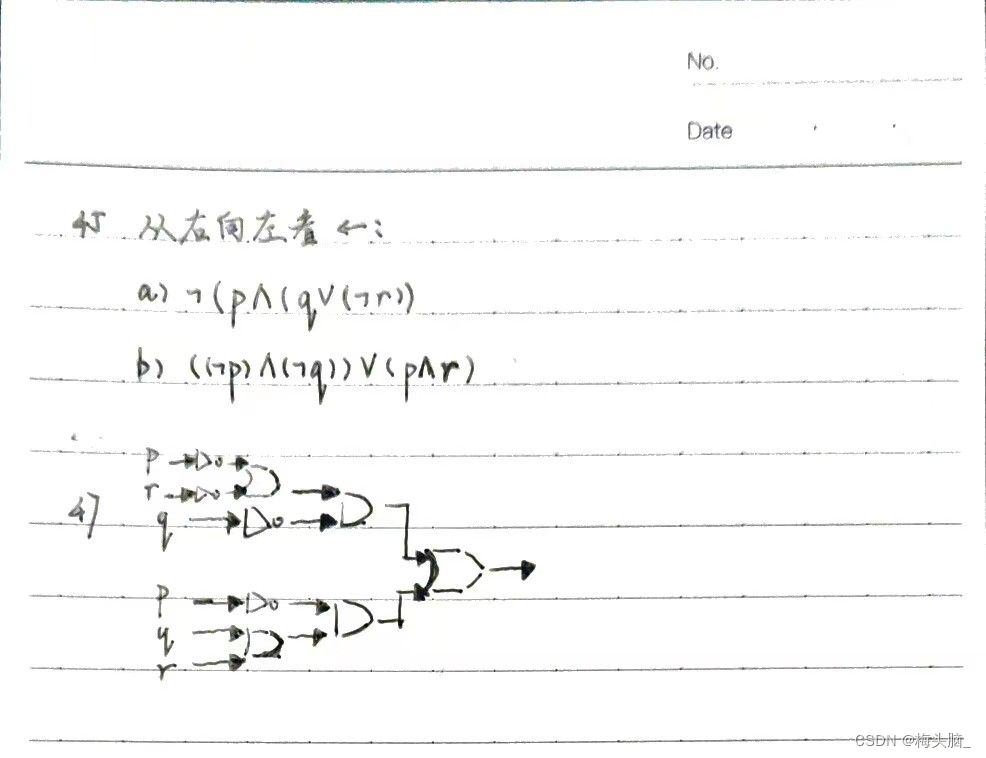 No.
Date
45 从右向左看 ←:
a) ¬(p∧(q∨(¬r))
b) ((¬p)∧(¬q))∨(p∧r)
p
r
47
q
p
q
r
CSDN @梅头脑_